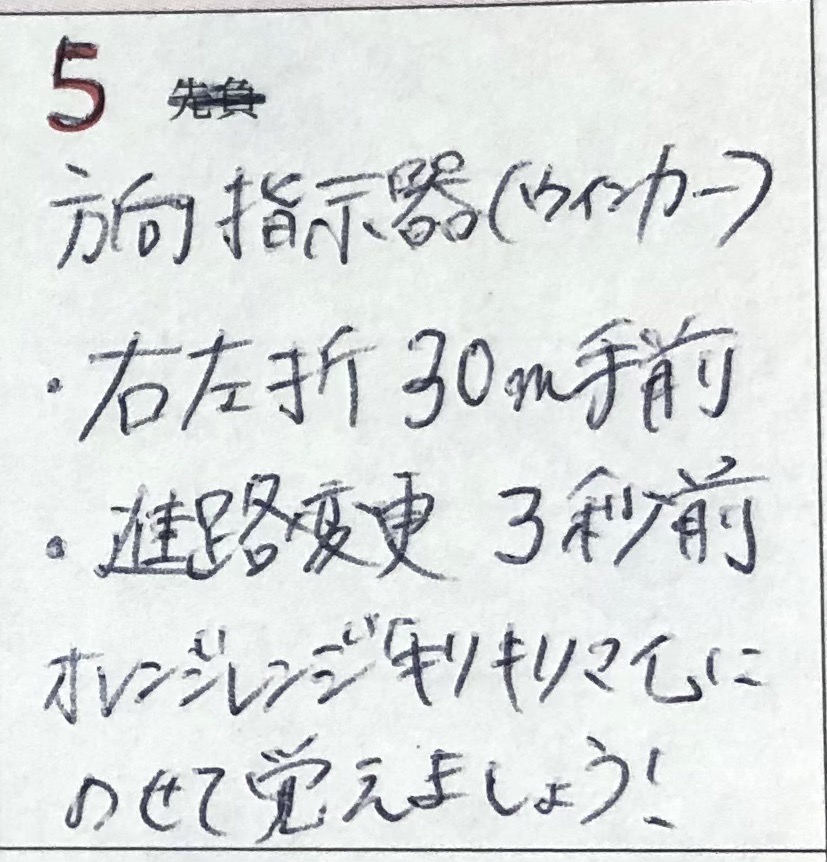 5 先負
方向指示器(ウインカー)
・右左折 30m手前
・進路変更 3秒前
オレンジレンジ「キリキリマイ」に
のせて覚えましょう!